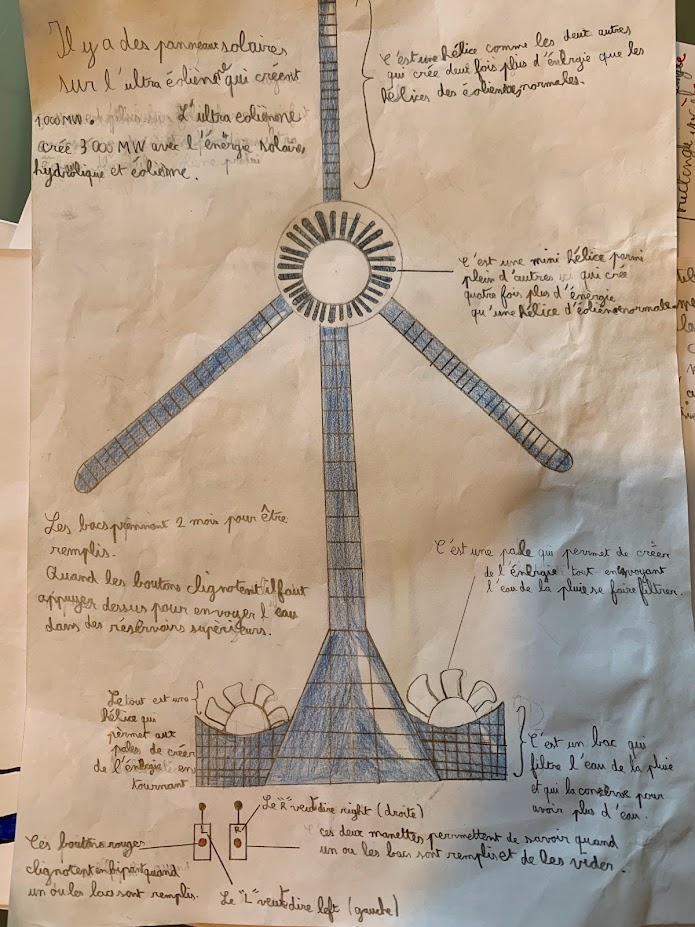 Il y a des panneaux solaires
sur l'ultra éoliene qui créent
1000 MW. L'ultra éolienne
crée 3 000 MW avec l'énérgie solaire,
hydrolique et éolienne.
C'est une hélice comme les deux autres
qui crée deux fois plus d'énérgie que les
hélices des éoliennes normales.
C'est une mini hélice parmi
plein d'autres qui crée
quatre fois plus d'énérgie
qu'une hélice d'éolienne normale.
Les bacs prennent 2 mois pour être
remplis.
Quand les boutons clignotent il faut
appuyer dessus pour envoyer l'eau
dans des réservoirs supérieurs.
C'est une pale qui permet de créer
de l'énérgie tout en envoyant
l'eau de la pluie se faire filtrer.
Le tout est une
hélice qui
permet aux
pales de créer
de l'énérgie en
tournant
C'est un bac qui
filtre l'eau de la pluie
et qui la conserve pour
avoir plus d'eau.
L
R
Le "R" veut dire right (droite)
Ces deux manettes permettent de savoir quand
un ou les bacs sont remplis et de les vider.
Ces boutons rouges
clignotent en bipant quand
un ou les bacs sont remplis.
Le "L" veut dire left (gauche)